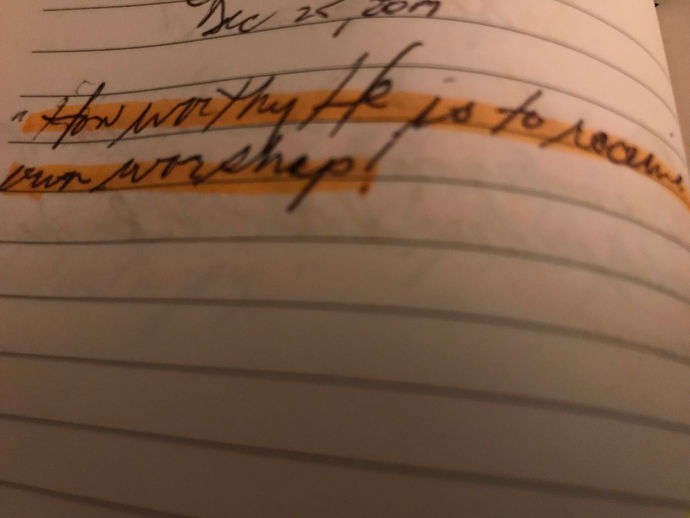 Dec 25, 2017
"How worthy He is to receive
our worship!